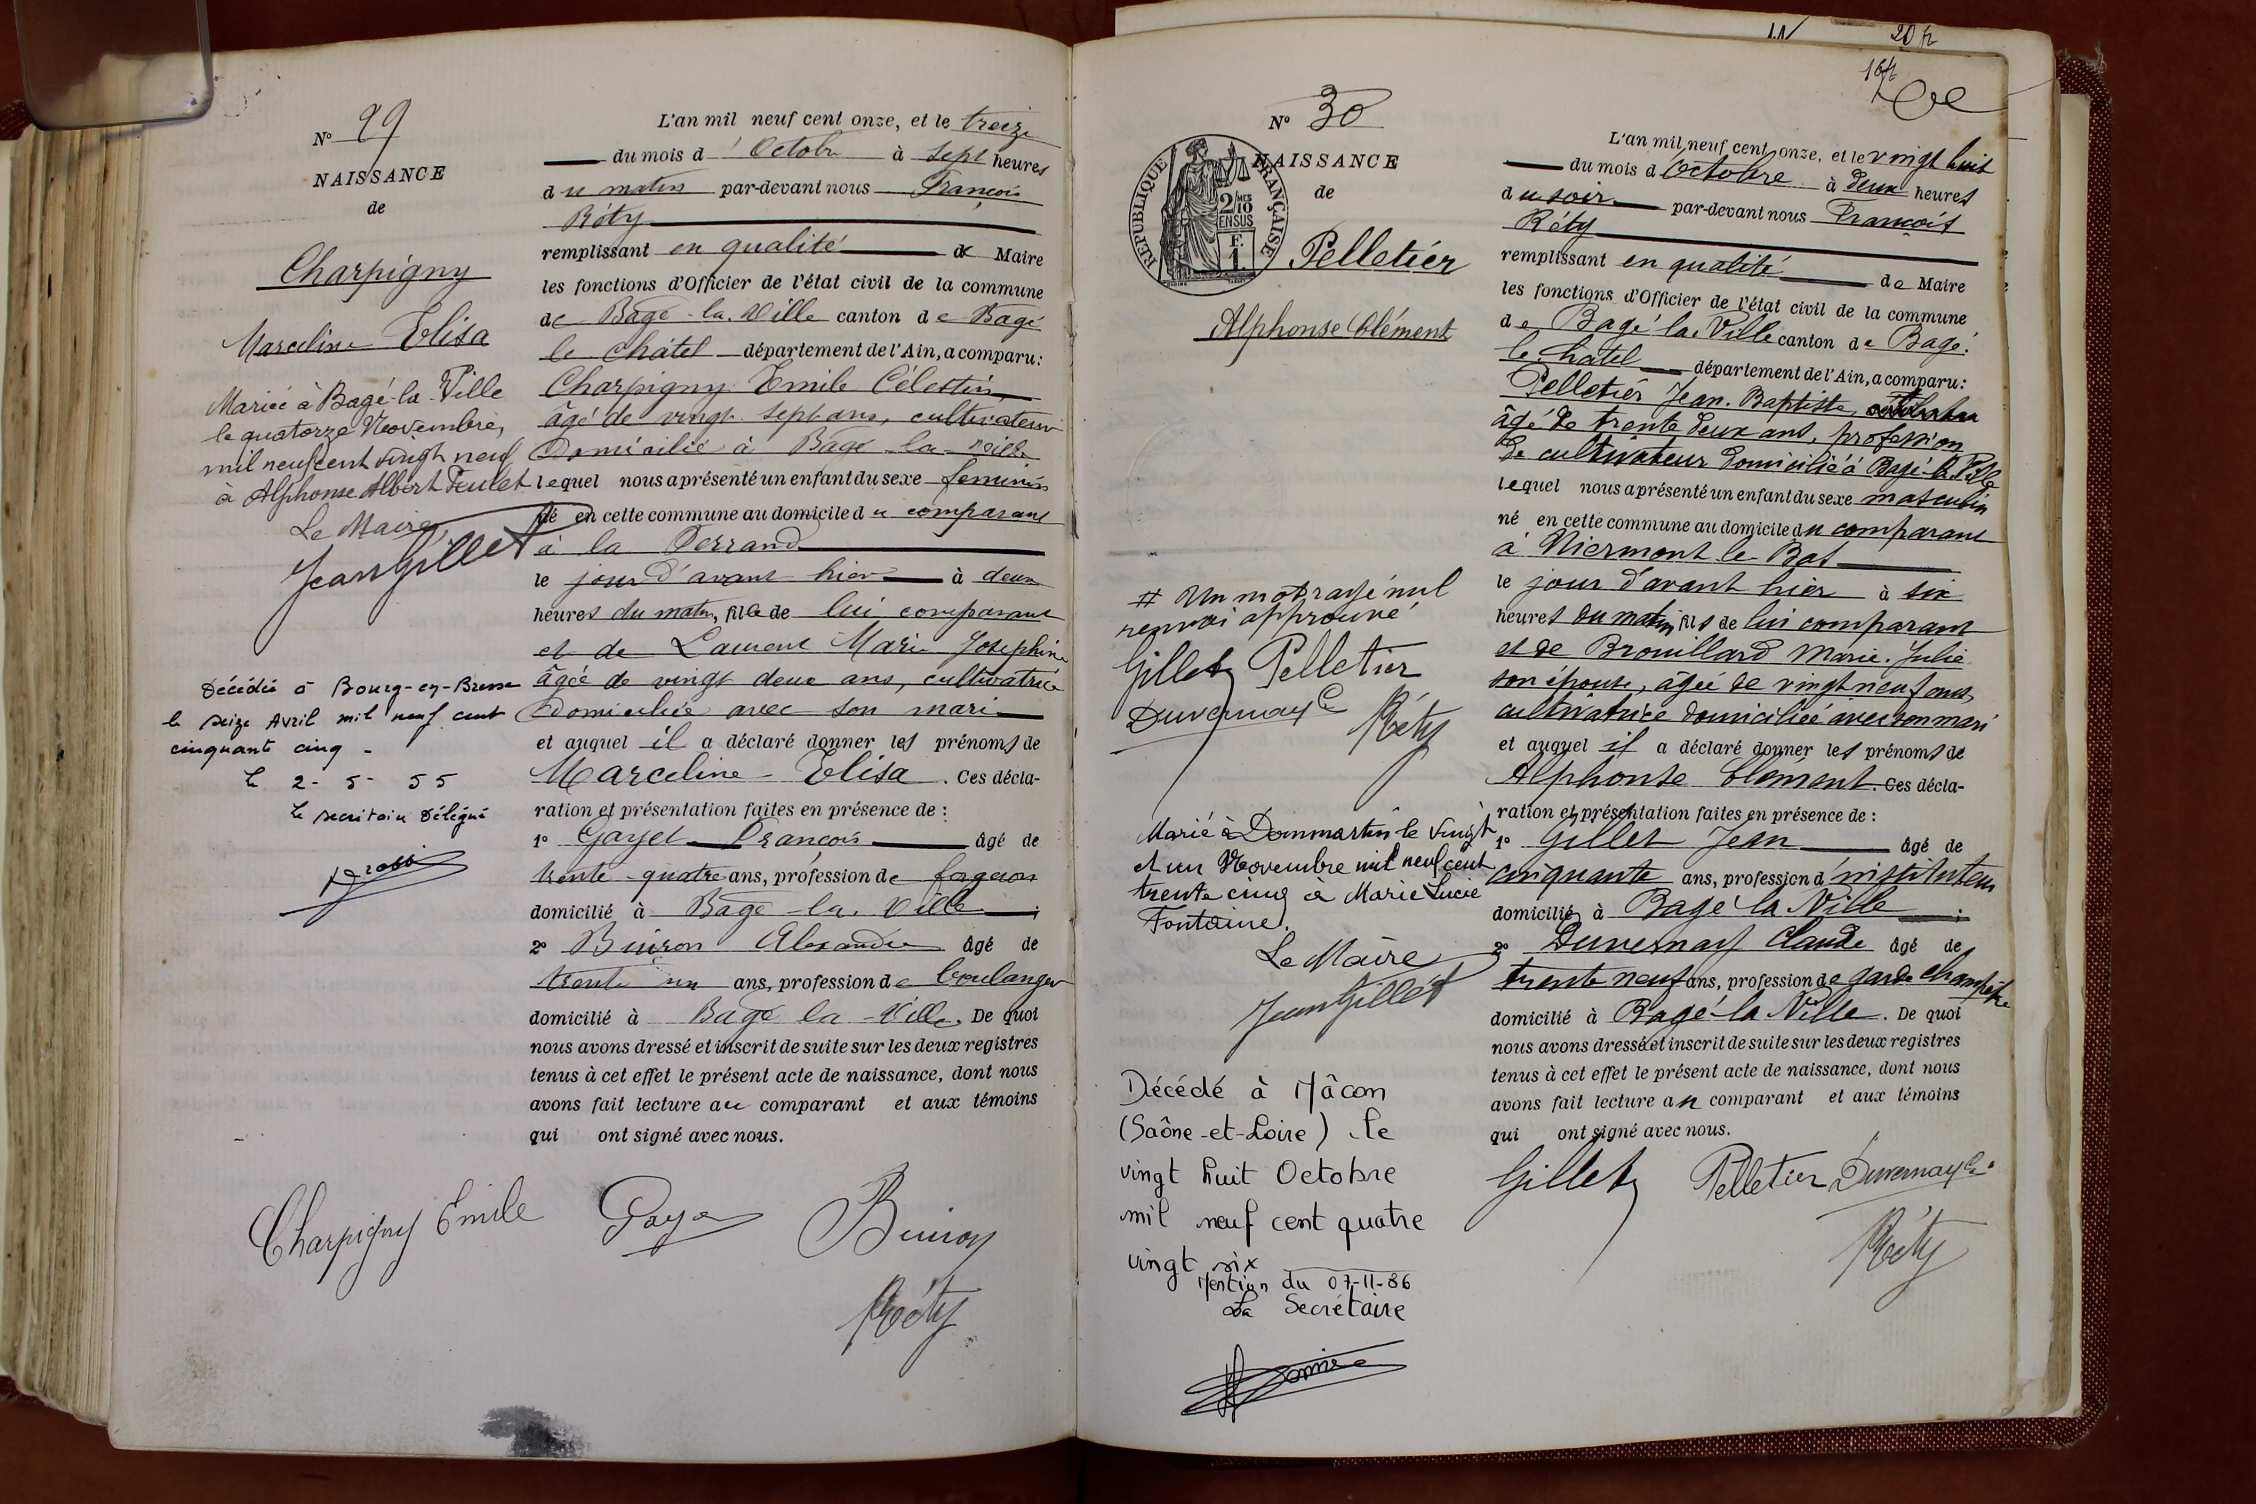 N° 29
NAISSANCE
de
Charpigny
Marceline Elisa
Mariée à Bagé-la-Ville
le quatorze Novembre,
mil neuf cent vingt neuf
à Alphonse Albert Feulet
Le Maire,
Jean Gillet
Décédée à Bourg-en-Bresse
le seize Avril mil neuf cent
cinquante cinq -
le 2-5-55
le secrétaire Délégué
L'an mil neuf cent onze, et le treize
du mois d'Octobre à sept heures
du matin par-devant nous François
Réty
remplissant en qualité de Maire
les fonctions d'Officier de l'état civil de la commune
de Bagé-la-Ville canton de Bagé
le Châtel département de l'Ain, a comparu :
Charpigny Emile Célestin,
âgé de vingt sept ans, cultivateur
domicilié à Bagé-la-Ville
lequel nous a présenté un enfant du sexe féminin
né en cette commune au domicile du comparant
à la Perrand
le jour d'avant hier à deux
heures du matin, fille de lui comparant
et de Laurent Marie Josephine
âgée de vingt deux ans, cultivatrice
domiciliée avec son mari
et auquel il a déclaré donner les prénoms de
Marceline - Elisa. Ces décla-
ration et présentation faites en présence de :
1° Gayet François âgé de
trente-quatre ans, profession de forgeron
domicilié à Bagé-la-Ville ;
2° Buiron Alexandre âgé de
trente un ans, profession de boulanger
domicilié à Bagé la Ville. De quoi
nous avons dressé et inscrit de suite sur les deux registres
tenus à cet effet le présent acte de naissance, dont nous
avons fait lecture au comparant et aux témoins
qui ont signé avec nous.
Charpigny Emile Gayet Buiron
Réty
20 fr
N° 30
NAISSANCE
de
RÉPUBLIQUE FRANÇAISE
2/10 MES
EN SUS
F.
1
Pelletier
Alphonse Clément
# Un mot rayé nul
renvoi approuvé
Gillet Pelletier
Duvernay C
Réty
Marié à Dommartin le vingt
et un Novembre mil neuf cent
trente cinq à Marie Lucie
Fontaine.
Le Maire
Jean Gillet
Décédé à Mâcon
(Saône-et-Loire) le
vingt huit Octobre
mil neuf cent quatre
vingt six
Mention du 07-11-86
La Secrétaire
L'an mil neuf cent onze, et le vingt huit
du mois d'Octobre à deux heures
du soir par-devant nous François
Réty
remplissant en qualité de Maire
les fonctions d'Officier de l'état civil de la commune
de Bagé la Ville canton de Bagé
le Châtel département de l'Ain, a comparu :
Pelletier Jean-Baptiste,
âgé de trente deux ans, profession
de cultivateur domicilié à Bagé-la-Ville
lequel nous a présenté un enfant du sexe masculin
né en cette commune au domicile du comparant
à Niermont le Bat
le jour d'avant hier à six
heures du matin fils de lui comparant
et de Brouillard Marie-Julie
son épouse, âgée de vingt neuf ans,
cultivatrice domiciliée avec son mari
et auquel il a déclaré donner les prénoms de
Alphonse Clément. Ces décla-
ration et présentation faites en présence de :
1° Gillet Jean âgé de
cinquante ans, profession d'instituteur
domicilié à Bagé la Ville ;
2° Duvernay Claude âgé de
trente neuf ans, profession de garde champêtre
domicilié à Bagé-la Ville. De quoi
nous avons dressé et inscrit de suite sur les deux registres
tenus à cet effet le présent acte de naissance, dont nous
avons fait lecture au comparant et aux témoins
qui ont signé avec nous.
Gillet Pelletier Duvernay C.
Réty